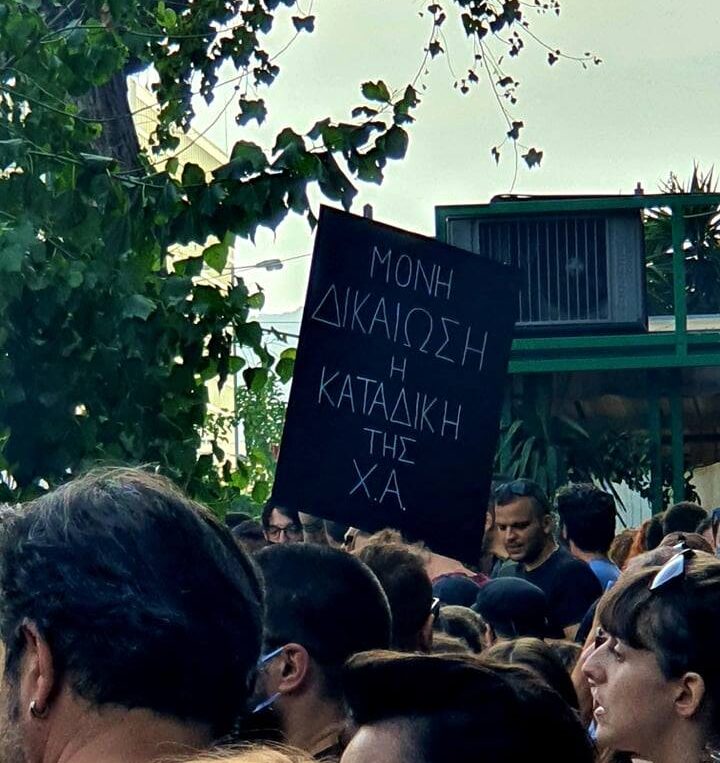 ΜΟΝΗ
ΔΙΚΑΙΩΣΗ
Η
ΚΑΤΑΔΙΚΗ
ΤΗΣ
Χ.Α.